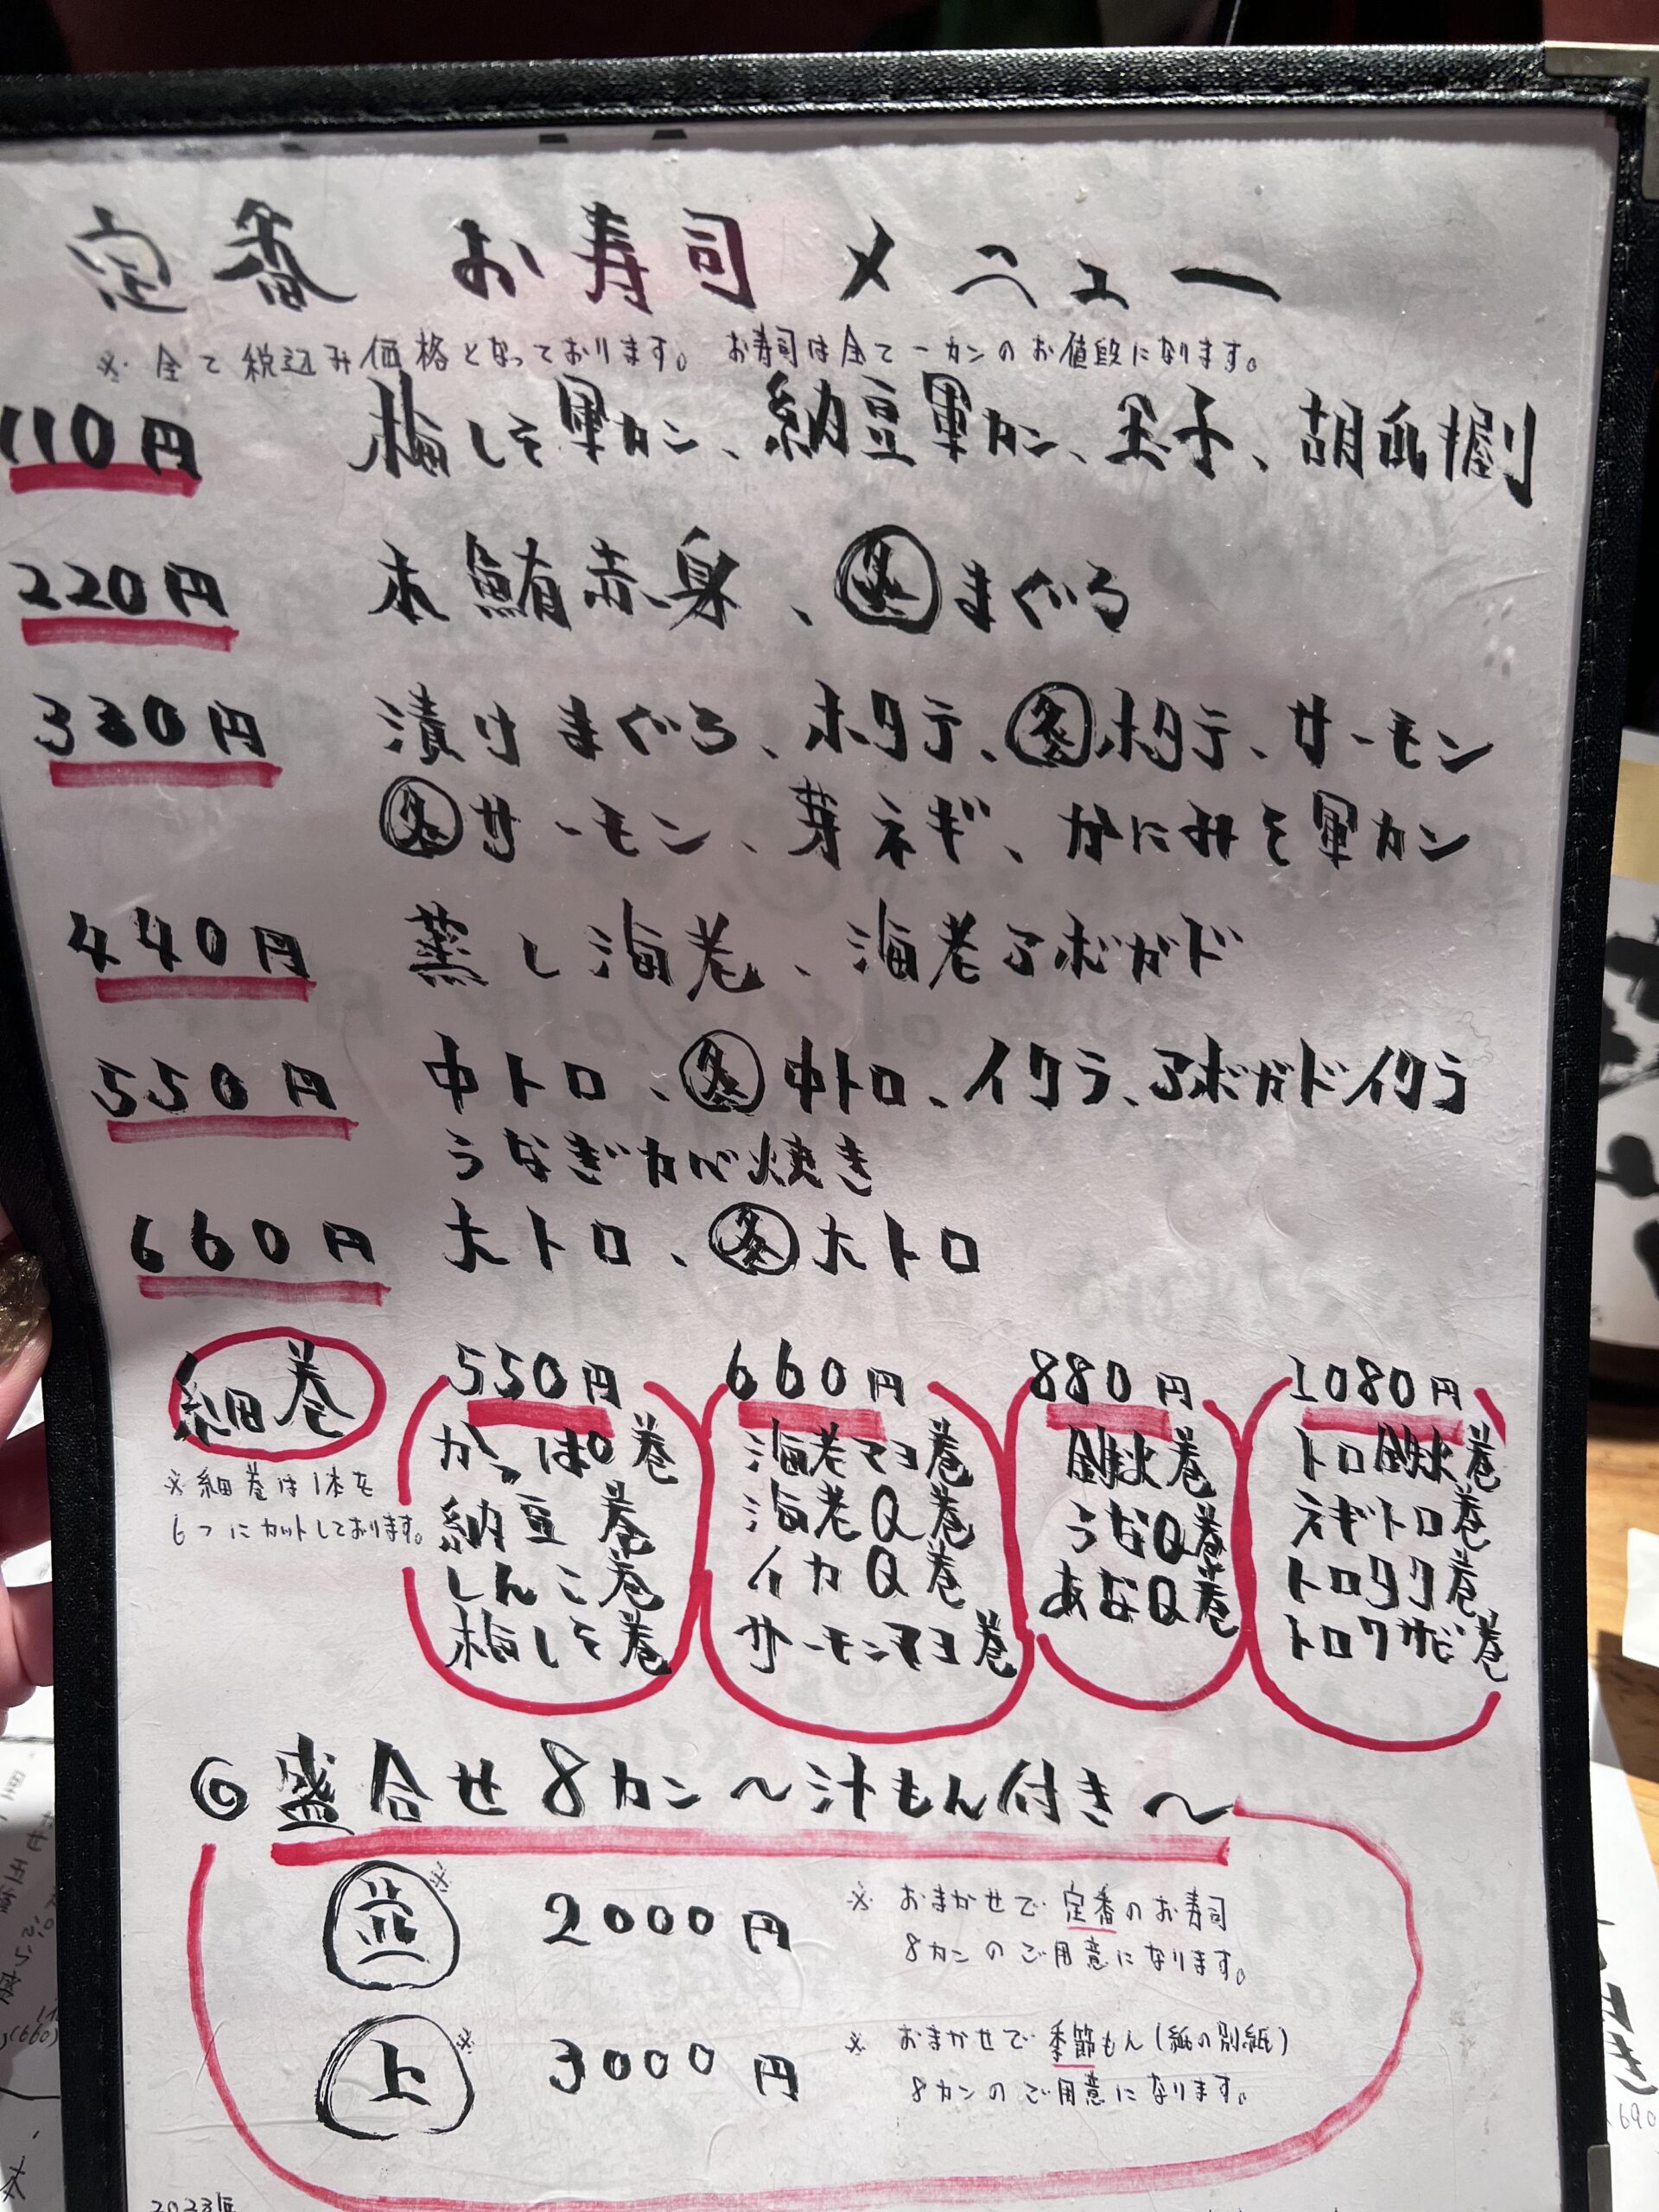 定番 お寿司 メニュー
※ 全て税込み価格となっております。 お寿司は全て一カンのお値段になります。
110円 梅しそ軍カン、納豆軍カン、玉子、胡瓜握り
220円 本鮪赤身、㋜まぐろ
330円 漬けまぐろ、ホタテ、炙ホタテ、サーモン
炙サーモン、芽ネギ、かにみそ軍カン
440円 蒸し海老、海老アボガド
550円 中トロ、炙中トロ、イクラ、アボガドイクラ
うなぎカバ焼き
660円 大トロ、炙大トロ
細巻
※細巻は1本を
6つにカットしております。
550円
かっぱ巻
納豆巻
しんこ巻
梅しそ巻
660円
海老マヨ巻
海老Q巻
イカQ巻
サーモンマヨ巻
880円
鉄火巻
うなQ巻
あなQ巻
1080円
トロ鉄火巻
ネギトロ巻
トロタク巻
トロワサビ巻
◎ 盛合せ8カン〜汁もん付き〜
並※ 2000円 ※ おまかせで定番のお寿司
8カンのご用意になります。
上※ 3000円 ※ おまかせで季節もん(紙の別紙)
8カンのご用意になります。